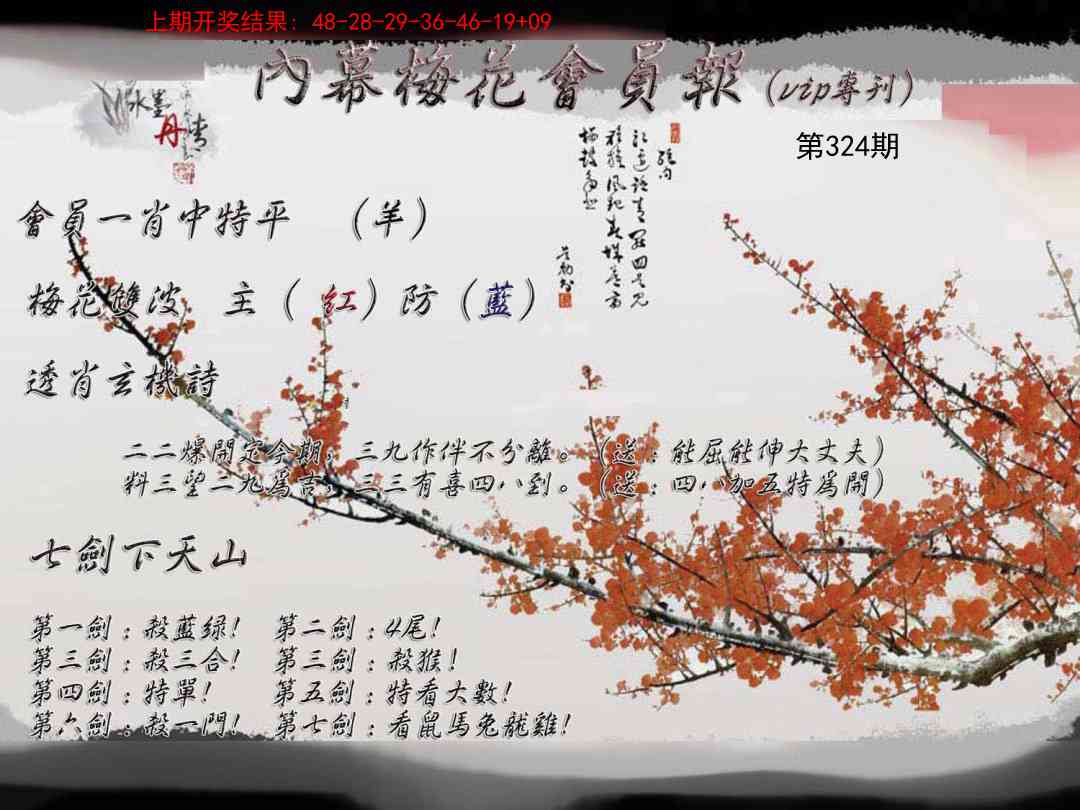 上期开奖结果: 48-28-29-36-46-19+09
內幕梅花會員報 (vip專刊)
水墨
丹青
第324期
會員一肖中特平 (羊)
梅花雙波 主(紅)防(藍)
透肖玄機詩
二二爆開定今期，三九作伴不分離。(送：能屈能伸大丈夫)
料三望二九爲吉，三三有喜四八到。(送：四八加五特爲開)
七劍下天山
第一劍：殺藍绿! 第二劍：4尾!
第三劍：殺三合! 第三劍：殺猴!
第四劍：特單! 第五劍：特看大數!
第六劍：殺一門! 第七劍：看鼠馬兔龍雞!